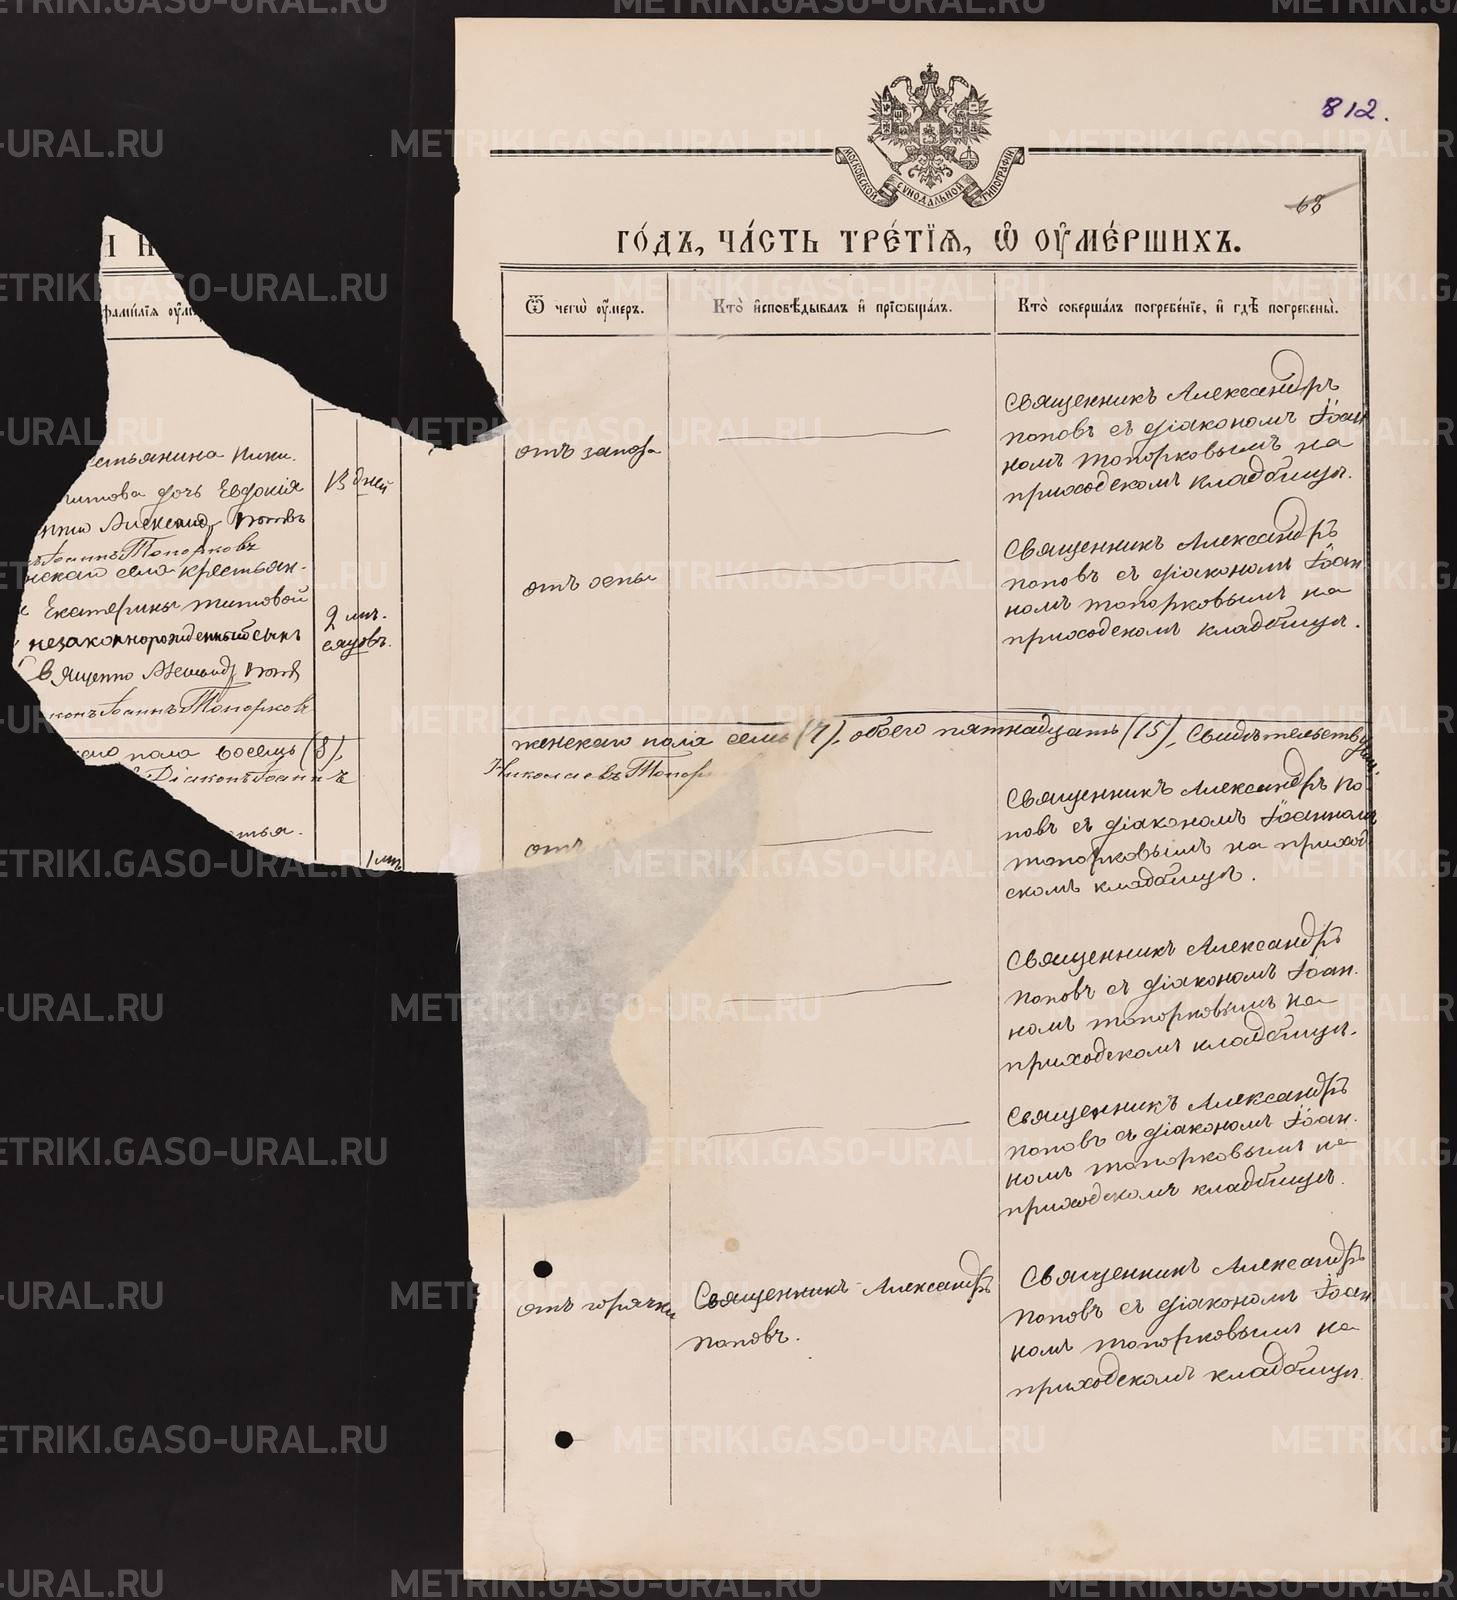 812.
68
МОСКОВСКОЙ СѴНОДАЛЬНОЙ ТИПОГРАФІИ
ГО́ДЪ, ЧА́СТЬ ТРЕ́ТІѦ, Ѡ҆ ОУ҆МЕ́РШИХЪ.
фами́лїѧ
Ѿ чегѡ̀ оу҆́меръ.
Кто̀ и҆сповѣ́дывалъ и҆ прїѡбща́лъ.
Кто̀ соверша́лъ погребе́нїе, и҆ гдѣ̀ погребены̀.
стьянина Ники.
дочь Евдокія
Александръ Поповъ
Іоаннъ Топорковъ
13 дней
отъ запора
Священникъ Александръ
Поповъ съ діакономъ Іоан
номъ Топорковымъ на
приходскомъ кладбищѣ.
скаго села крестьян-
Екатерины Титовой
незаконнорожденный сынъ
Іоаннъ Топорковъ
2 мѣ-
сяцовъ.
отъ оспы
Священникъ Александръ
Поповъ съ діакономъ Іоан
номъ Топорковымъ на
приходскомъ кладбищѣ.
каго пола восемь (8),
Діаконъ Іоаннъ
женскаго пола семь (7), обоего пятнадцать (15). Свидѣтельствуемъ
Николаевъ Топор
1 мѣ
отъ
Священникъ Александръ По-
повъ съ діакономъ Іоанномъ
Топорковымъ на приход
скомъ кладбищѣ.
Священникъ Александръ
Поповъ съ діакономъ Іоан-
номъ Топорковымъ на
приходскомъ кладбищѣ.
Священникъ Александръ
Поповъ съ діакономъ Іоан-
номъ Топорковымъ на
приходскомъ кладбищѣ.
отъ горячки
Священникъ Александръ
Поповъ.
Священникъ Александръ
Поповъ съ діакономъ Іоан
номъ Топорковымъ на
приходскомъ кладбищѣ.
METRIKI.GASO-URAL.RU